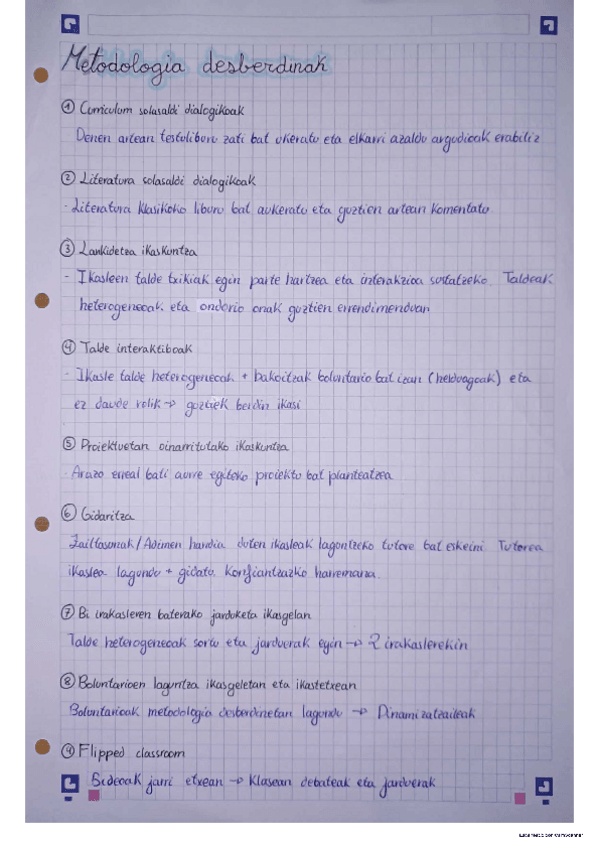 Metodologia desberdinak
① Curriculum solasaldi dialogikoak
Denen artean testuliburu zati bat ukeratu eta elkarri azaldu argudioak erabiliz
② Literatura solasaldi dialogikoak
- Literatura klasikoko liburu bat aukeratu eta guztien artean komentatu
③ Lankidetza ikaskuntza
- Ikasleen talde txikiak egin parte hartzea eta interakzioa sustatzeko. Taldeak
heterogeneoak eta ondorio onak guztien errendimenduan
④ Talde interaktiboak
- Ikasle talde heterogeneoak + bakoitzak boluntario bat izan (helduagoak) eta
ez daude rolik → guztiek berdin ikasi
⑤ Proiektuetan oinarritutako ikaskuntza
- Arazo erreal bati aurre egiteko proiektu bat planteatzea
⑥ Gidaritza
Zailtasunak/Adimen handia duten ikasleak laguntzeko tutore bat eskeini. Tutorea
ikaslea lagundu + gidatu. Konfiantzazko harremana.
⑦ Bi irakasleren baterako jarduketa ikasgelan
Talde heterogeneoak sortu eta jarduerak egin → 2 irakaslerekin
⑧ Boluntarioen laguntza ikasgeletan eta ikastetxean
Boluntarioak metodologia desberdinetan lagundu → Dinamizatzaileak
⑨ Flipped classroom
Bideoak jarri etxean → Klasean debateak eta jarduerak